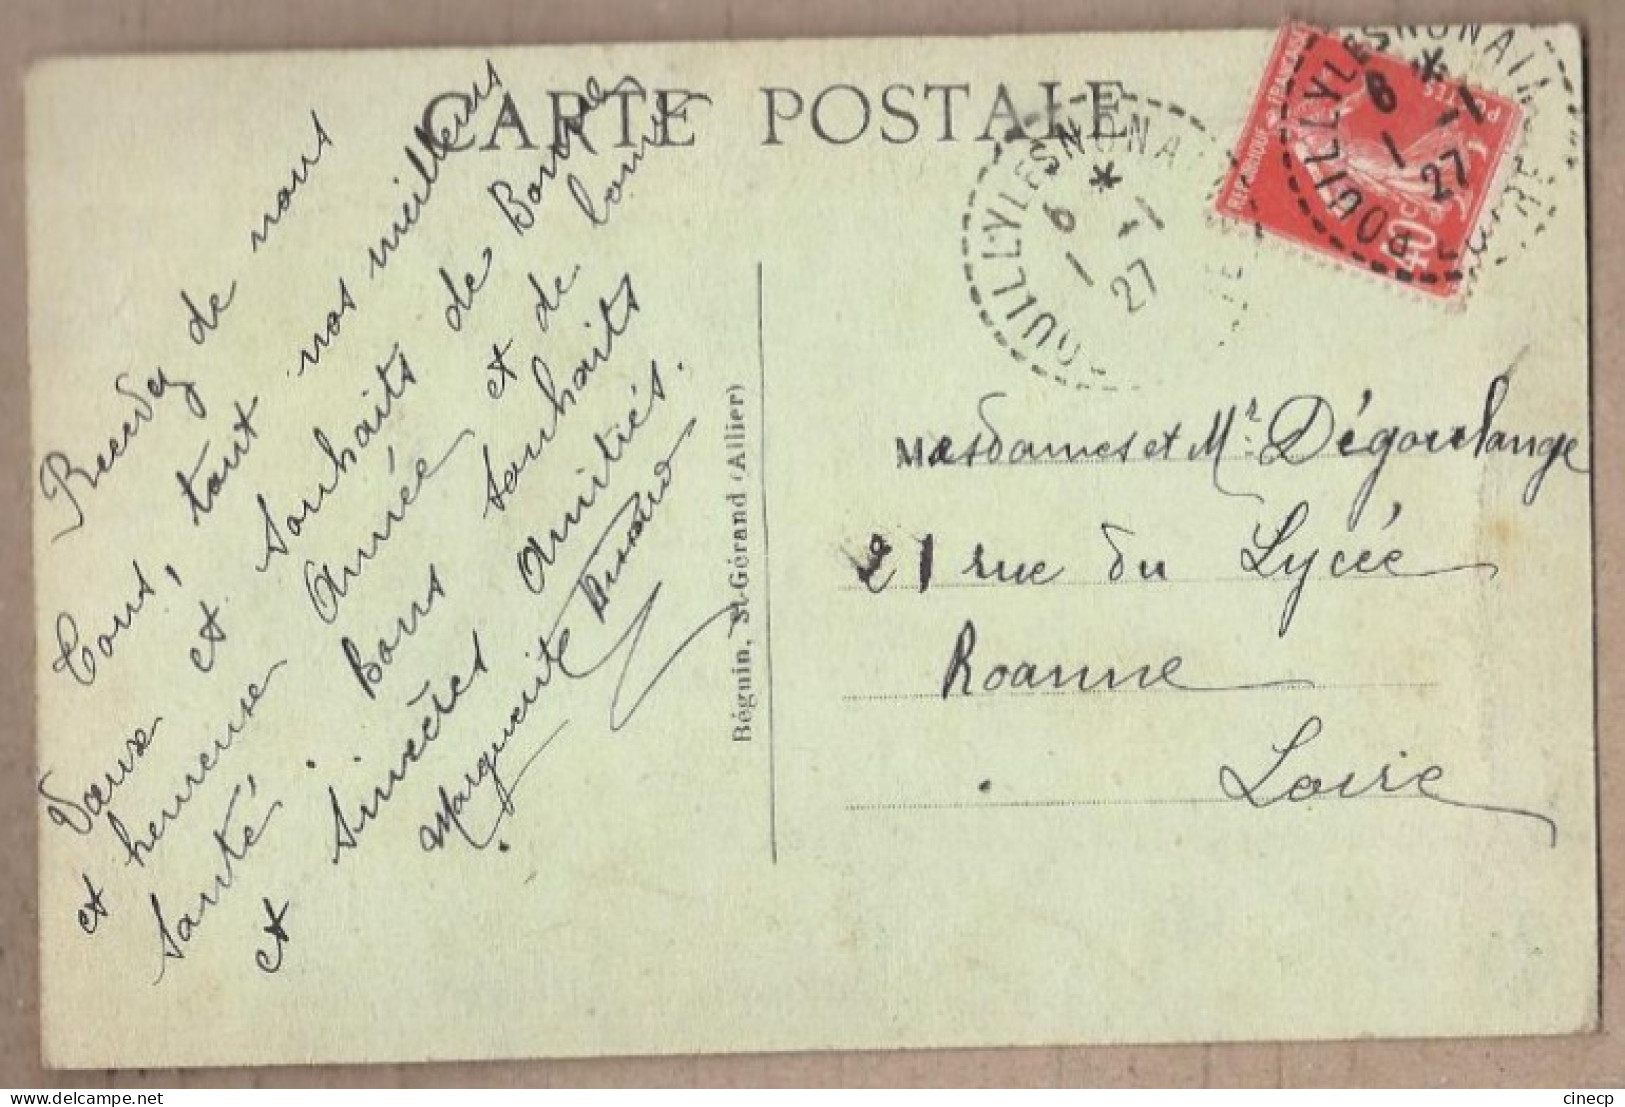 CARTE POSTALE
Recevez de nous
Tous, tant nos meilleurs
Vœux et souhaits de Bonne
et heureuse Année et de bonne
Santé, Bons souhaits
et sincères amitiés.
Marguerite
Béguin, St-Gérand (Allier)
POUILLY LES NONAINS
6 - 1
27
REPUBLIQUE FRANÇAISE
POSTES
40c
POUILLY LES NONAINS
6 - 1
27
Mesdames et Mr Dégoulange
21 rue du Lycée
Roanne
Loire
cinecp